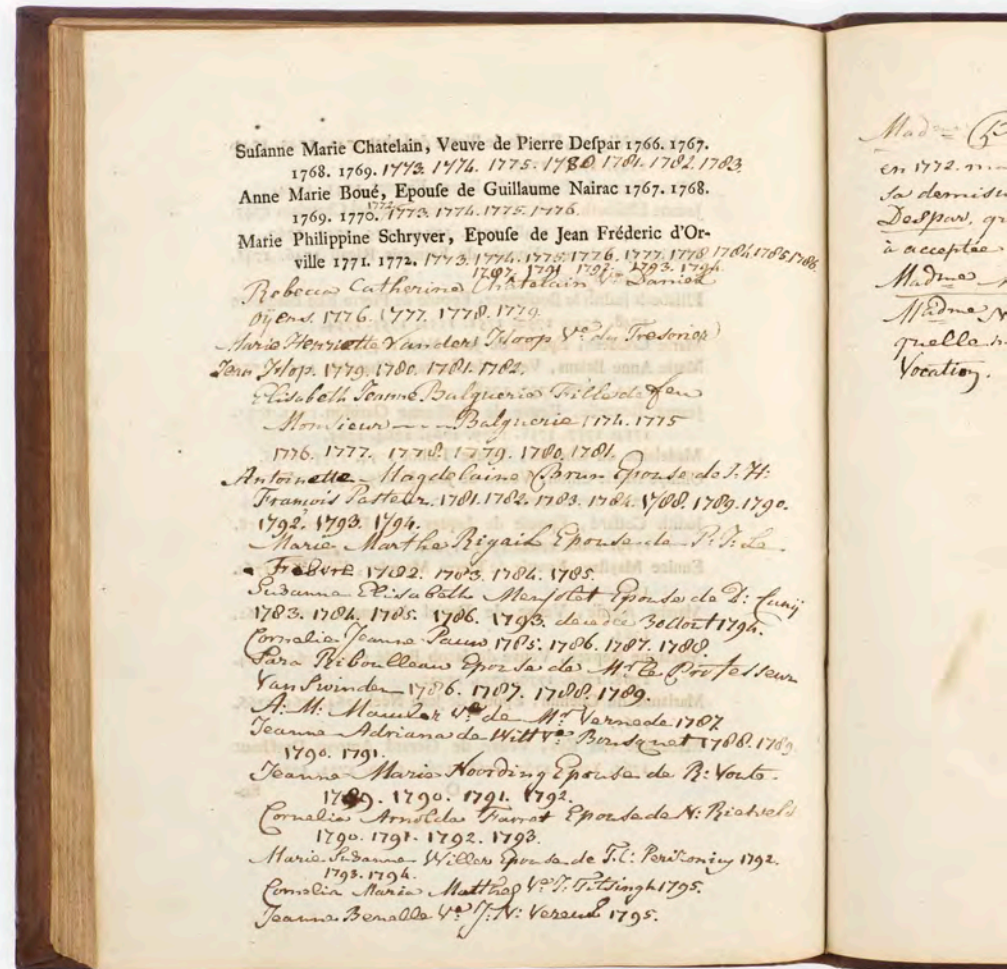 Susanne Marie Chatelain, Veuve de Pierre Despar 1766. 1767.
1768. 1769. 1773. 1774. 1775. 1780. 1781. 1782. 1783.
Anne Marie Boué, Epouse de Guillaume Nairac 1767. 1768.
1769. 1770. 1772. 1773. 1774. 1775. 1776.
Marie Philippine Schryver, Epouse de Jean Fréderic d'Or-
ville 1771. 1772. 1773. 1774. 1775. 1776. 1777. 1778. 1784. 1785. 1786.
1787. 1791. 1792. 1793. 1794.
Rebecca Catherine Châtelain Ve. Daniel
Oyens. 1776. 1777. 1778. 1779.
Marie Henriette Vander Hoop Ve. du Tresorier
Hop. 1779. 1780. 1781. 1782.
Elisabeth Jeanne Balguerie Fille de feu
Monsieur Balguerie 1774. 1775
1776. 1777. 1778. 1779. 1780. 1781.
Antoinette Magdelaine Brun Epouse de J. H:
François Pasteur. 1781. 1782. 1783. 1784. 1788. 1789. 1790.
1792. 1793. 1794.
Marie Marthe Rigail Epouse de P. J. Le
Febvre 1782. 1783. 1784. 1785.
Susanne Elisabeth Menjolet Epouse de D: Cunij
1783. 1784. 1785. 1786. 1793. decedée 30 Aout 1794.
Cornelie Jeanne Pauw 1785. 1786. 1787. 1788.
Sara Riboulleau Epouse de Mr. le Professeur
Van Swinden 1786. 1787. 1788. 1789.
A: M: Ve de Mr. Vernede 1787
Jeanne Adriana de Witt Ve. Bousquet 1788. 1789
1790. 1791.
Jeanne Marie Noording Epouse de R: Voute.
1789. 1790. 1791. 1792.
Cornelia Arnolda Farret Epouse de N: Rietveld
1790. 1791. 1792. 1793.
Marie Susanne Willer Epouse de J. C: Perizonius 1792.
1793. 1794.
Cornelia Maria Matthes Ve. J. Titsingh 1795.
Jeanne Benelle Ve. J: N: 1795.
Madme
en 1772.
sa demis
Despar, q
à acceptée
Madme
Madme N
quelle
Vocation.